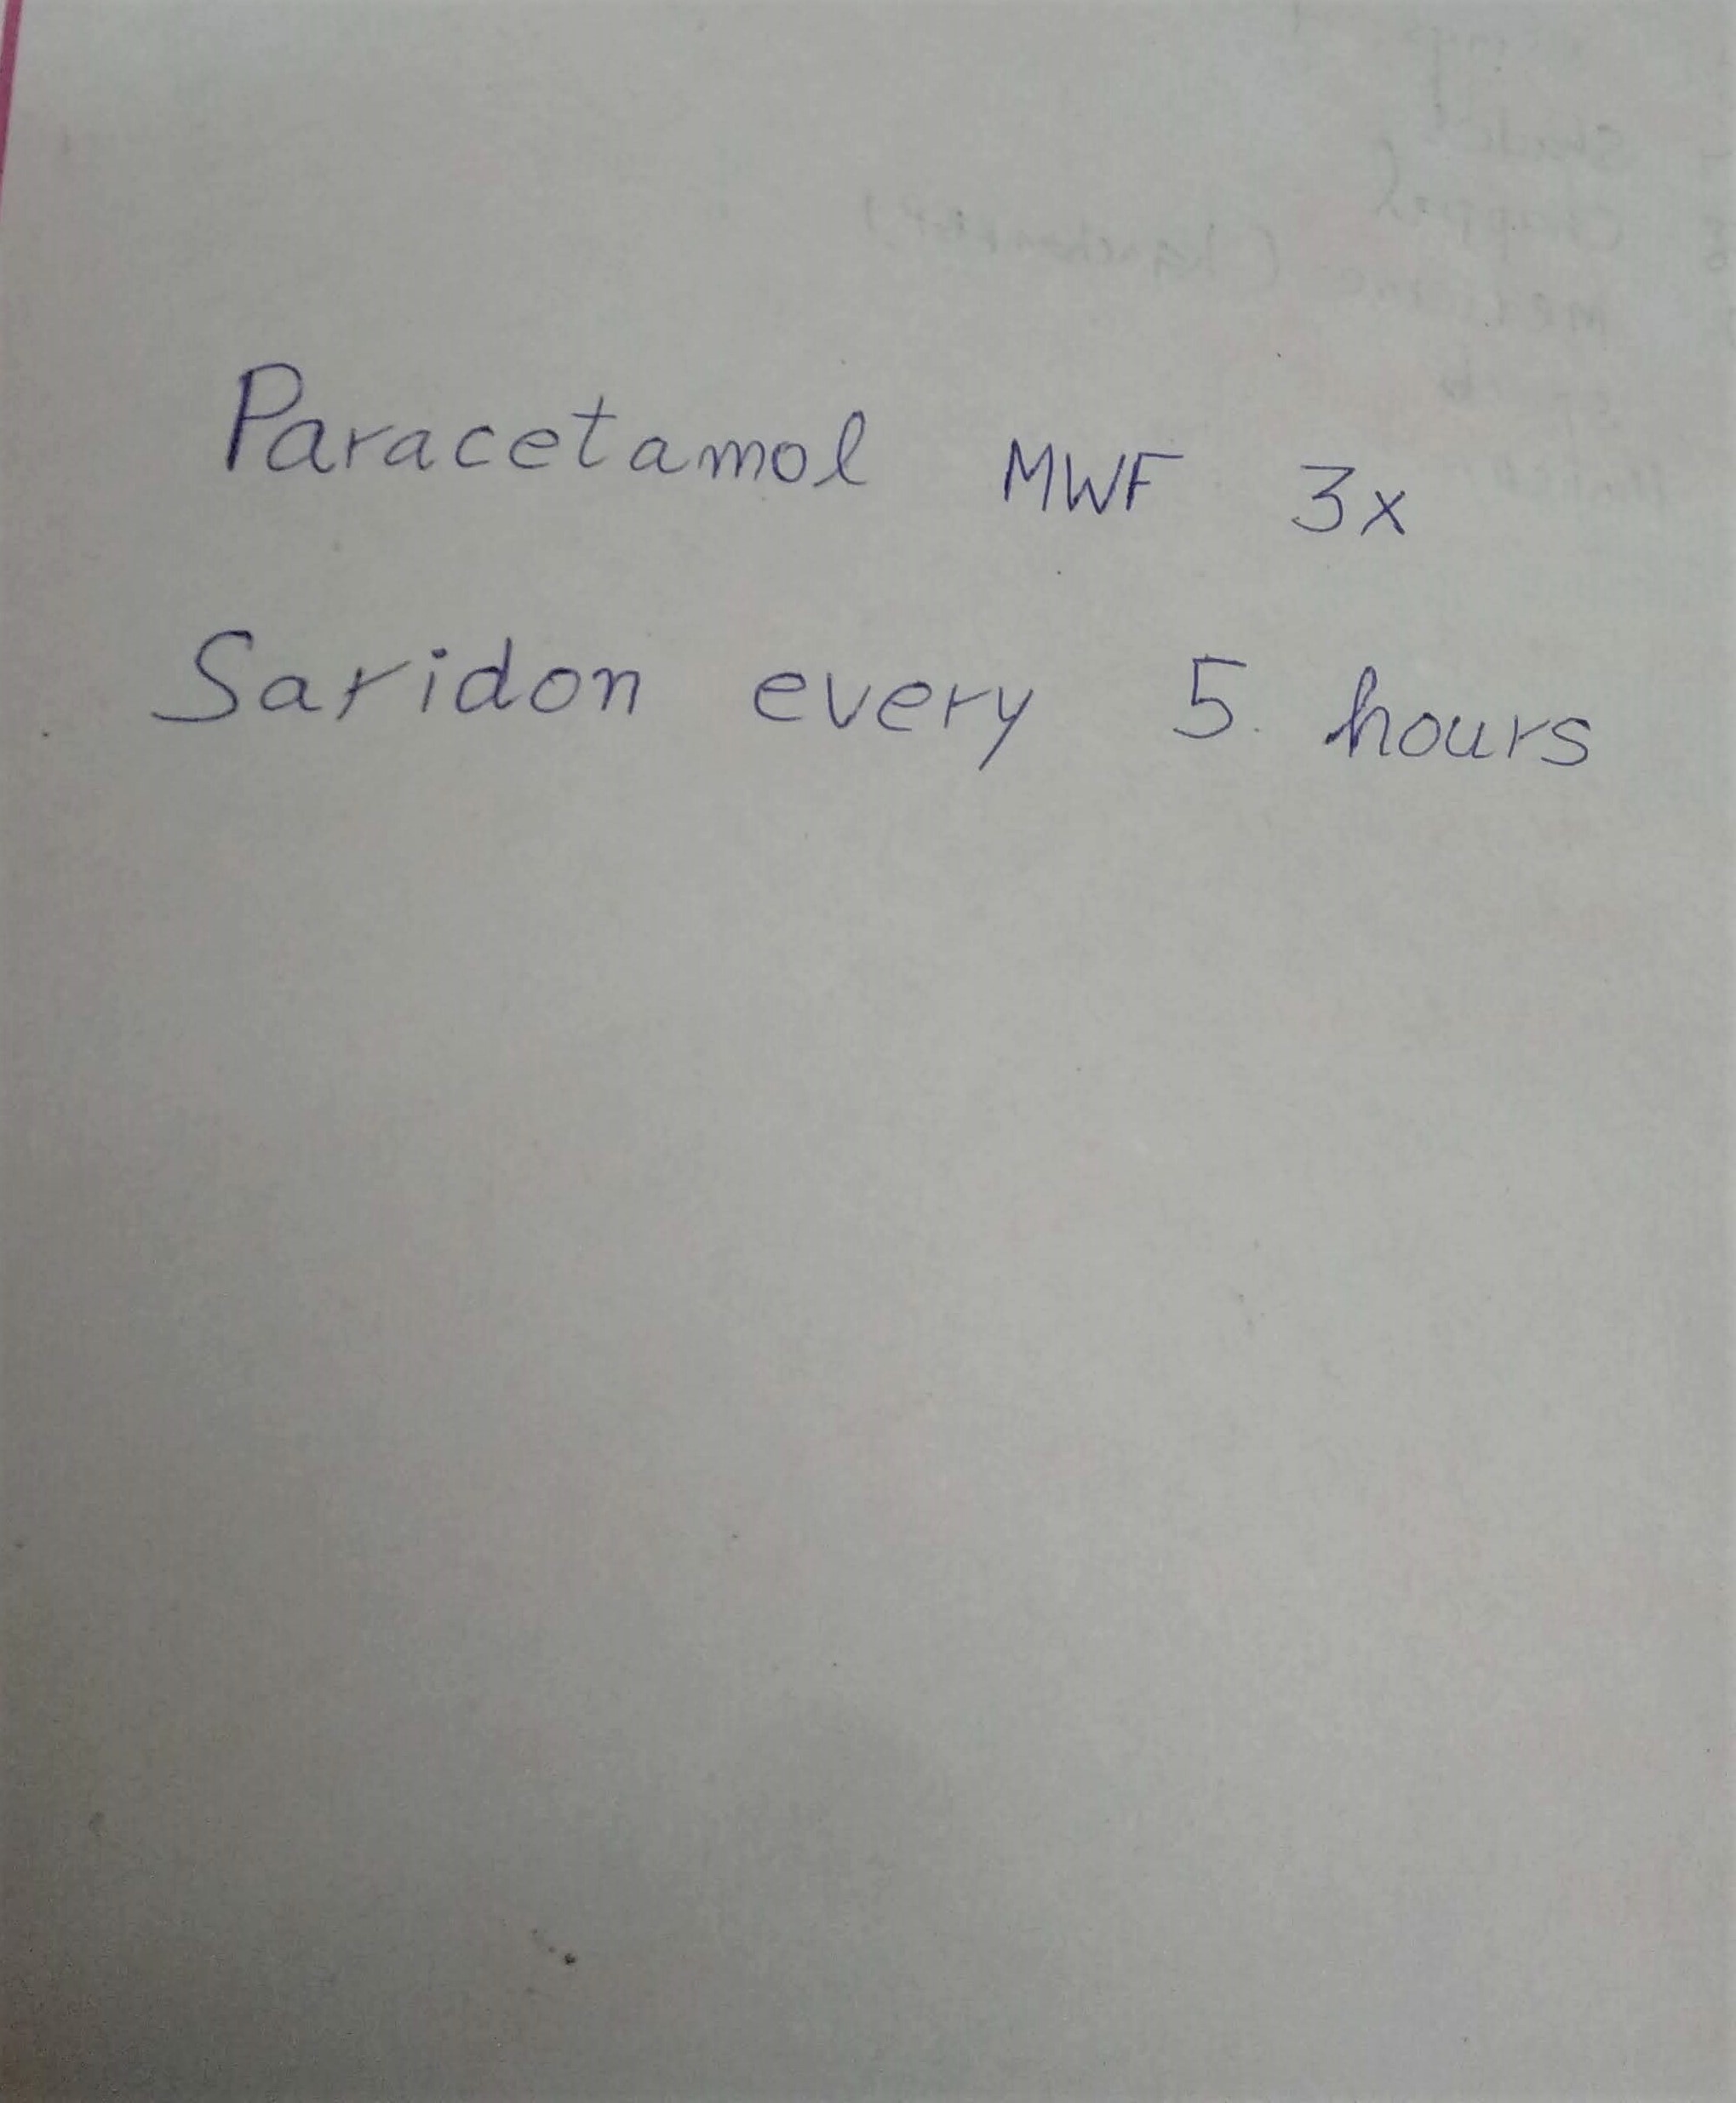 Paracetamol MWF 3x
Saridon every 5 hours